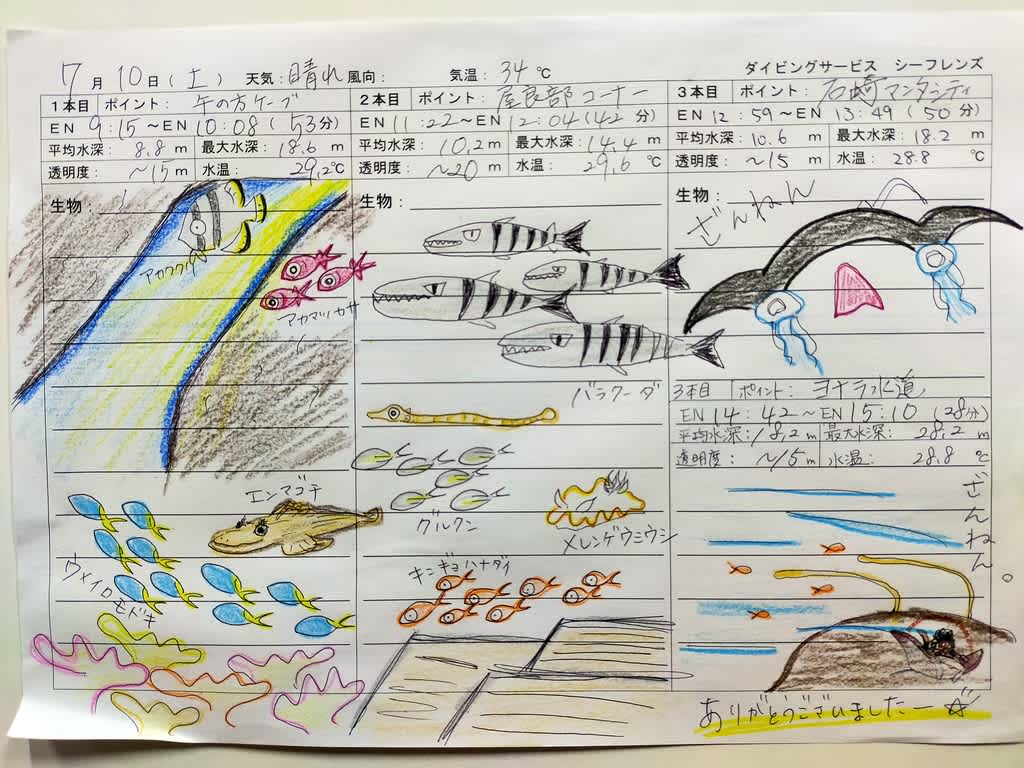 7月10日(土) 天気:晴れ 風向: 気温:34℃
ダイビングサービス シーフレンズ
1本目 ポイント: 午の方ケーブ
EN 9:15~EN 10:08(53分)
平均水深: 8.8m 最大水深: 18.6m
透明度: ~15m 水温: 29.2℃
生物:
アカククリ
アカマツカサ
エンマゴチ
ウメイロモドキ
2本目 ポイント: 屋良部コーナー
EN 11:22~EN 12:04(42分)
平均水深: 10.2m 最大水深: 14.4m
透明度: ~20m 水温: 29.6℃
生物:
バラクーダ
グルクン
メレンゲウミウシ
キンギョハナダイ
3本目 ポイント: 石崎マンタシティ
EN 12:59~EN 13:49(50分)
平均水深: 10.6m 最大水深: 18.2m
透明度: ~15m 水温: 28.8℃
生物:
ざんねん
3本目 ポイント: ヨナラ水道
EN 14:42~EN 15:10(28分)
平均水深: 18.2m 最大水深: 28.2m
透明度: ~15m 水温: 28.8℃
ざんねん。
ありがとうございましたー☆